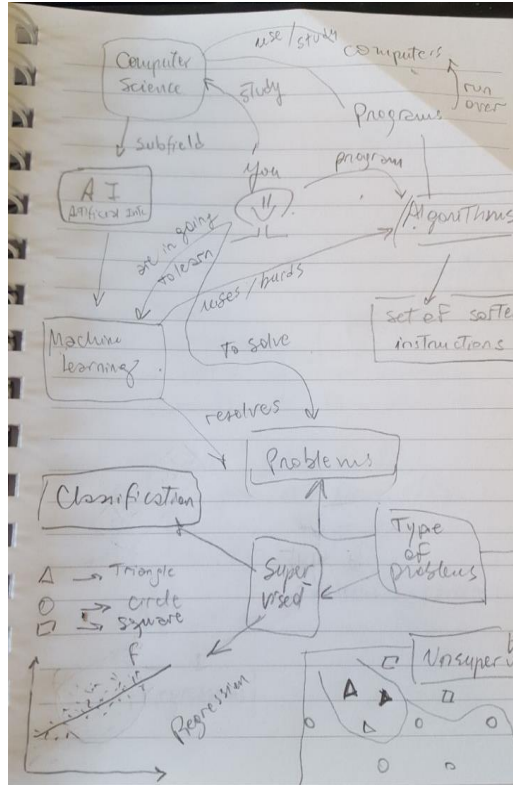 Computer
Science
use / study
computers
study
Programs
run
over
subfield
you
program
AI
Artificial Inte
Algorithms
are in going
to learn
uses /
set of sorte
instructions
Machine
Learning
To solve
resolves
Problems
Classification
Type
of
problems
Super
vised
△ → Triangle
○ → circle
□ → square
f
Regression
Unsuperv